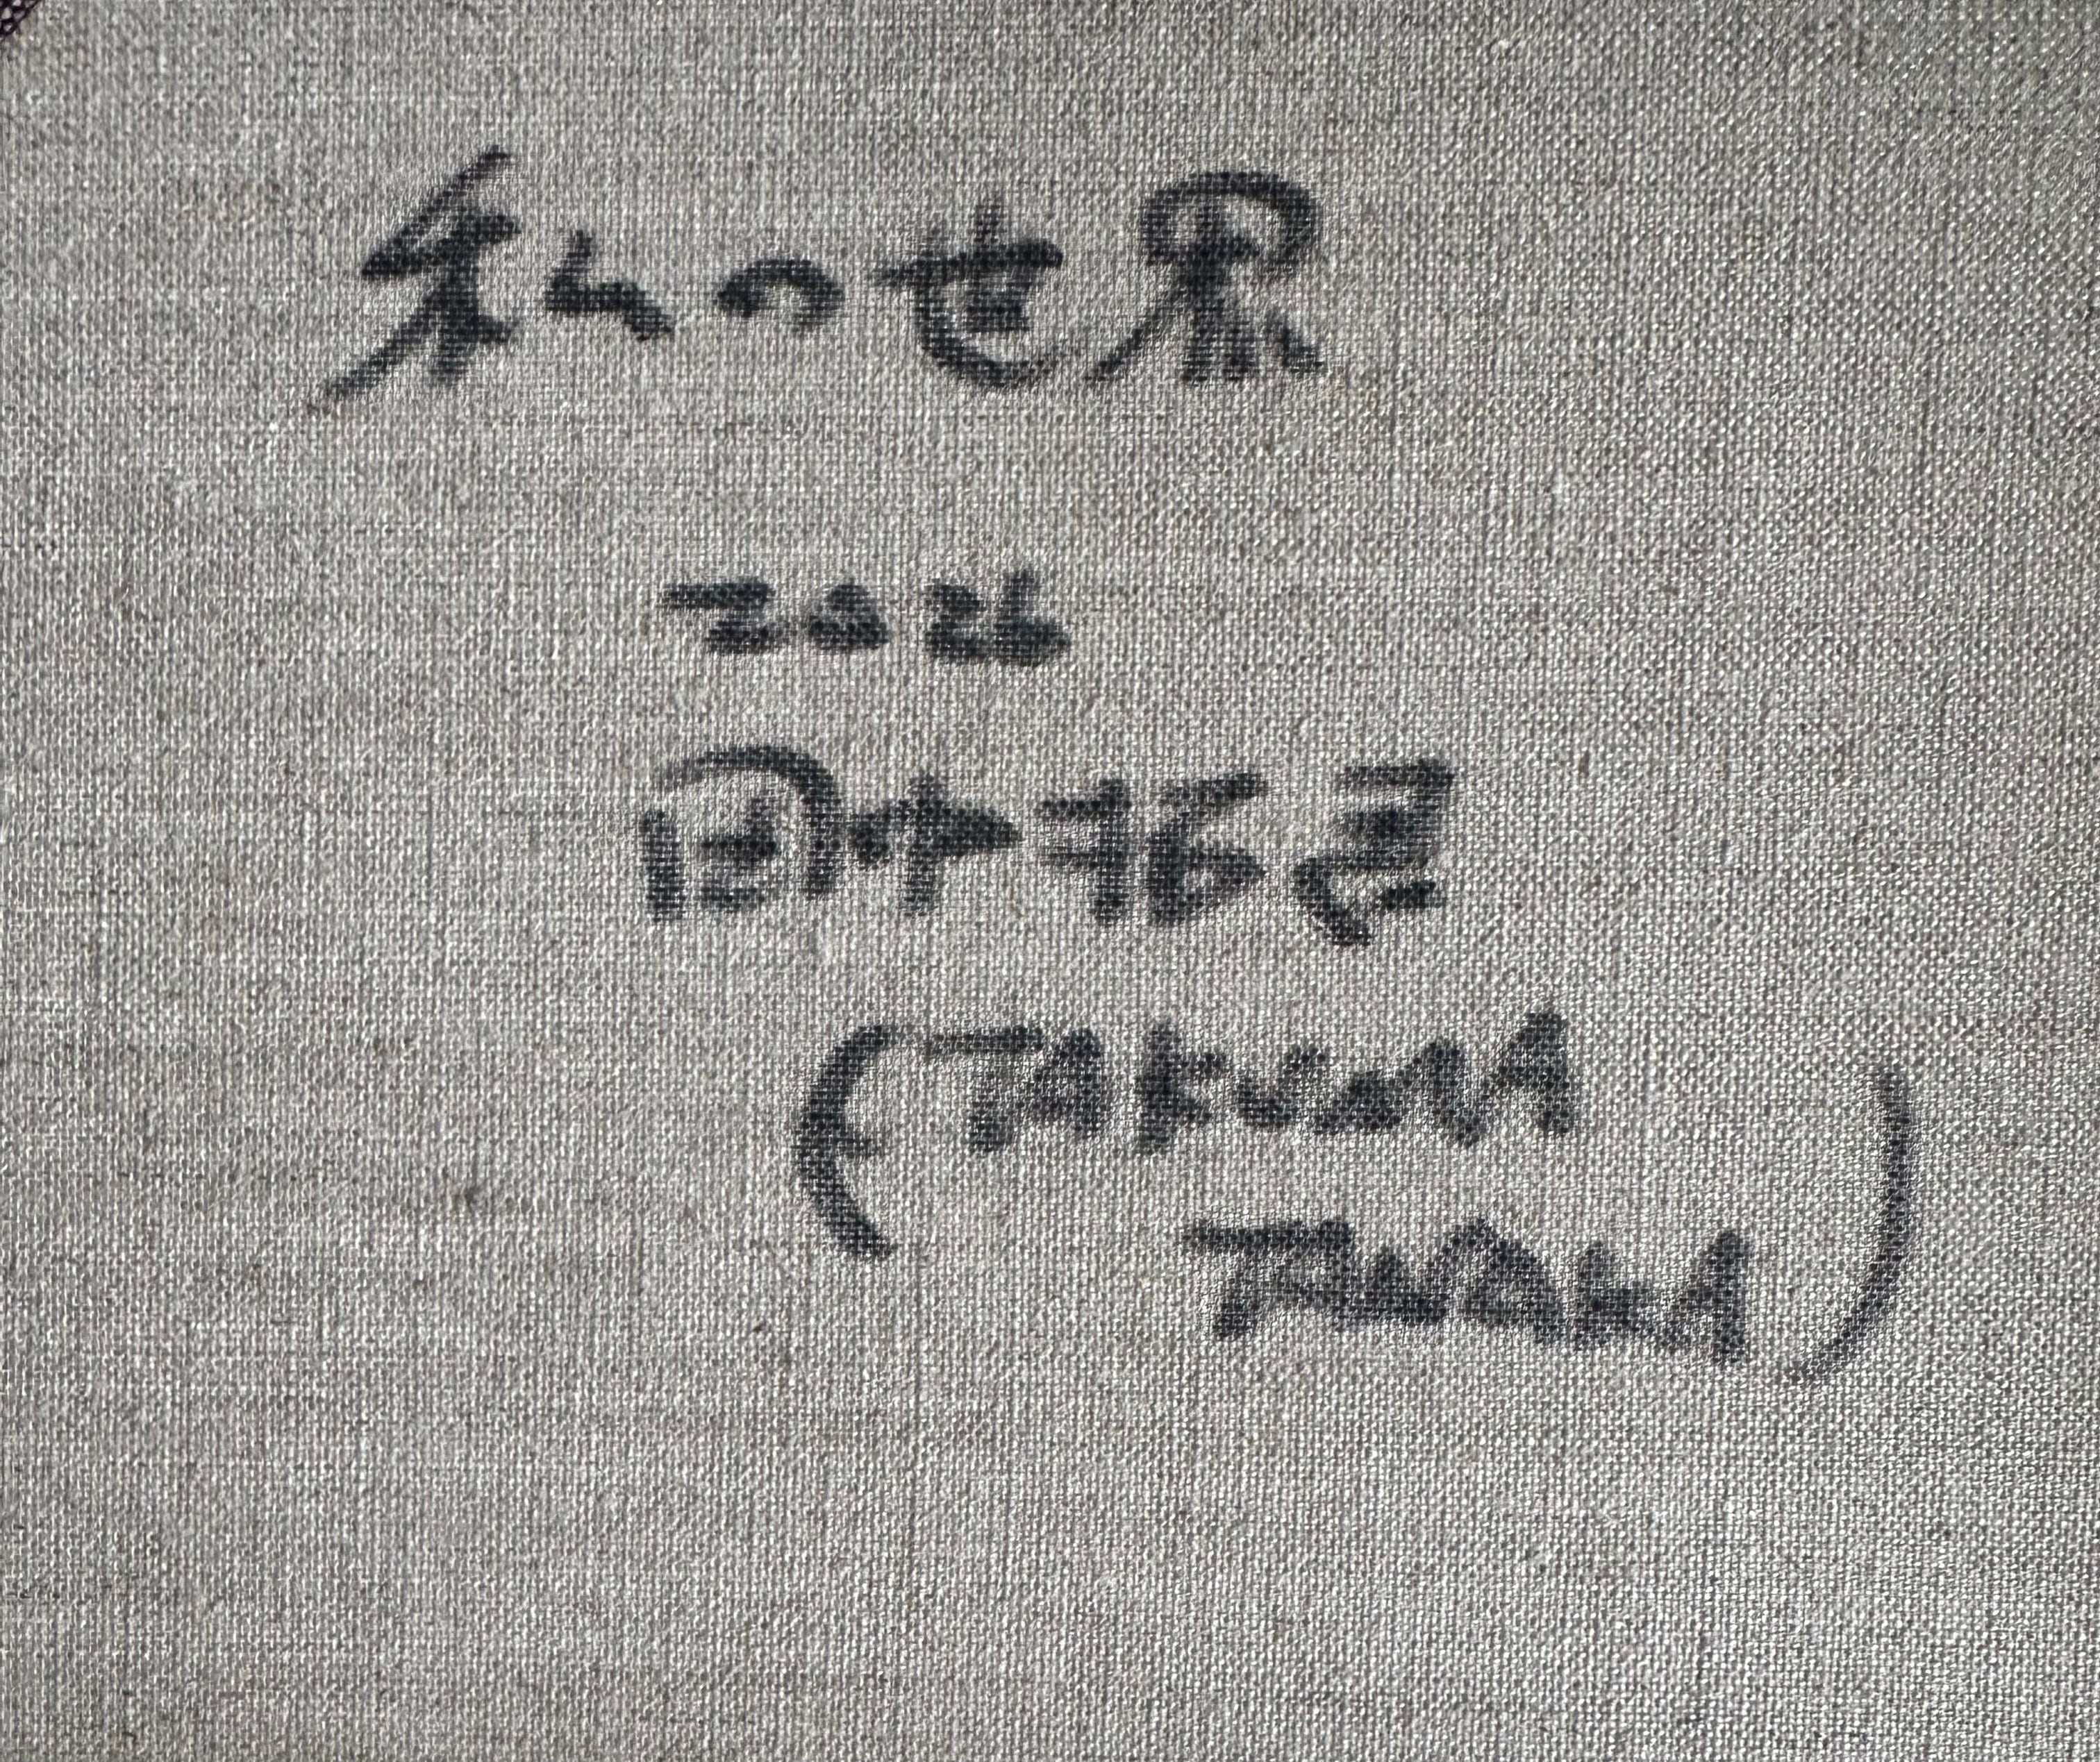 私の世界
2024
田中拓馬
(TAKUMA
TANAKA)